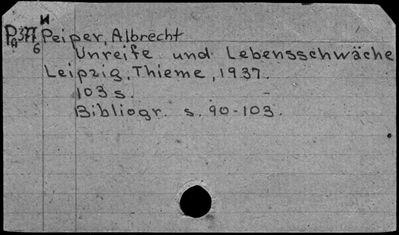 И
P 377 Peiper, Albrecht
A 6
Unreife und Lebensschwäche
Leipzig, Thieme, 1937.
103 s.
Bibliogr. s. 90-103.